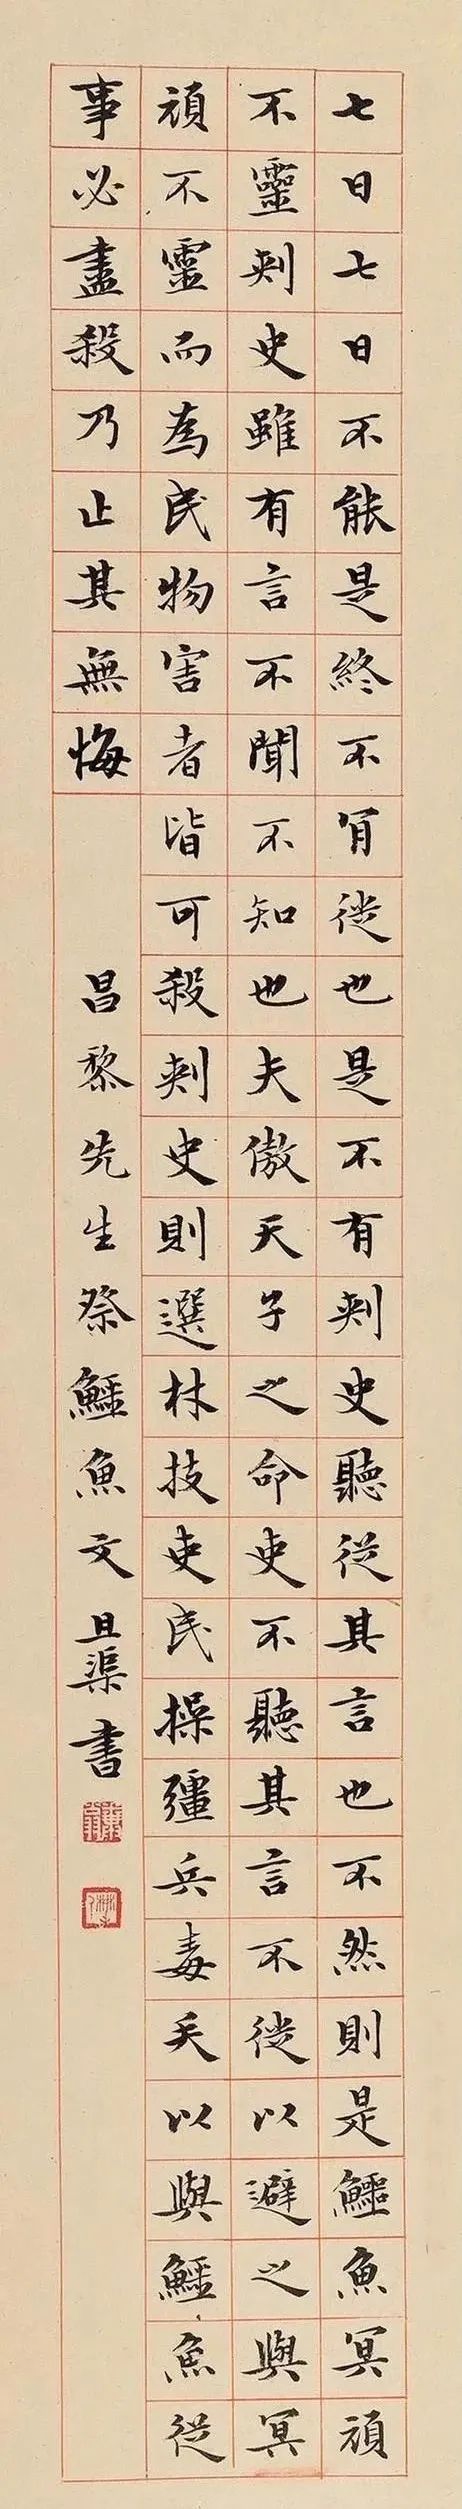 七日七日不能是終不肎徙也是不有刺史聽從其言也不然則是鱷魚冥頑
不靈刺史雖有言不聞不知也夫傲天子之命吏不聽其言不徙以避之與冥
頑不靈而為民物害者皆可殺刺史則選材技吏民操彊兵毒矢以與鱷魚從
事必盡殺乃止其無悔 昌黎先生祭鱷魚文 且渠書